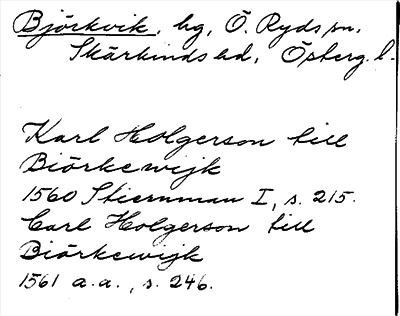 Björkvik, hg, Ö. Ryds sn,
Skärkinds hd, Östergl.
Karl Holgerson till
Biörkewijk
1560 Stiernman I, s. 215.
Carl Holgerson till
Biörkewijk
1561 a.a., s. 246.